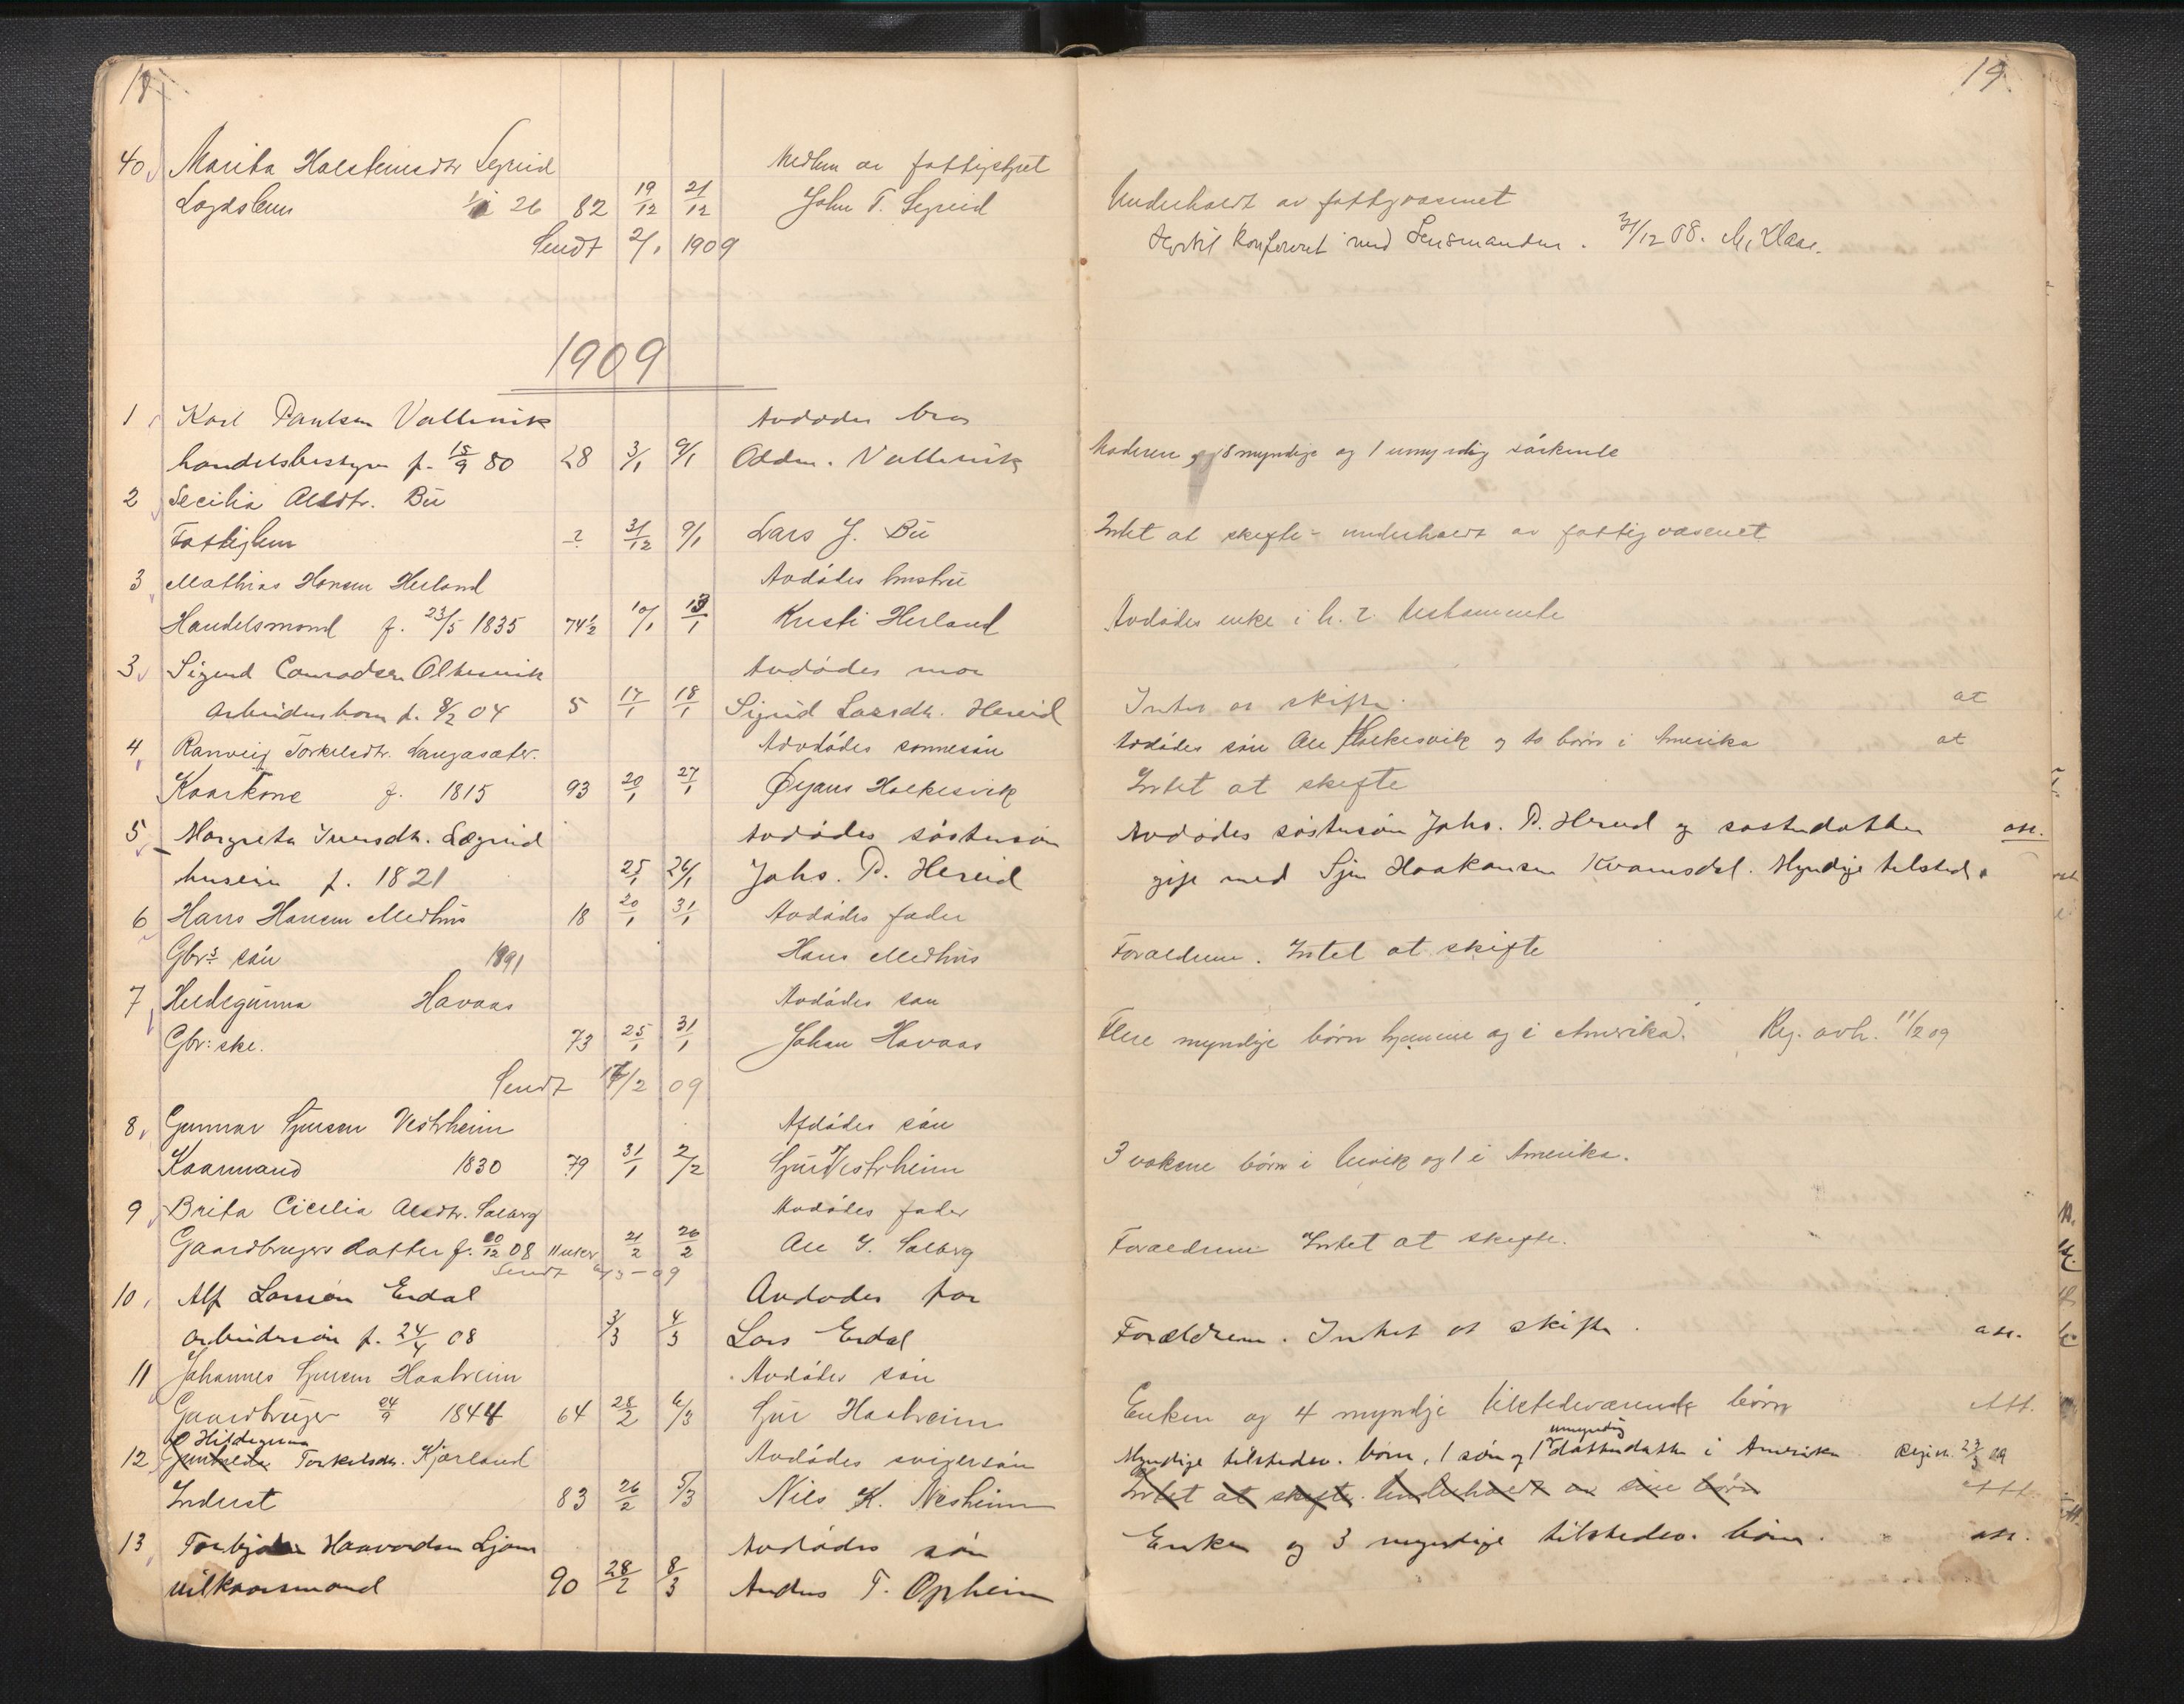 18
40 Marita Halsteinsdtr Legreid
Medlem av fattigstyret
Lægdslem 26 82 19/12 21/12 John T. Legreid
Sendt 2/1 1909
1909
1 Karl Paulsen Vallevik
Avdødes bror
handelsbestyrer f. 15/9 80 28 3/1 9/1 Oddm. Vallevik
2 Secilia Olsdtr. Bu
Fattiglem ? 31/12 9/1 Lars J. Bu
3 Mathias Hansen Herland
Avdødes hustru
Handelsmand f. 23/5 1835 74½ 10/1 13/1 Kristi Herland
3 Sigurd Conradsen Oltesvik
Avdødes mor
Arbeidersbarn f. 8/2 04 5 17/1 18/1 Sigrid Larsdtr. Hereid
4 Ranveig Torkelsdtr. Langasæter.
Avdødes sønnesøn
Kaarkone f. 1815 93 20/1 27/1 Ørjans Holkesvik
5 Margreta Iversdtr. Lægreid
Avdødes søstersøn
huseier f. 1821 25/1 26/1 Johs. P. Hereid
6 Hans Hansen Medhus 18 20/1 31/1 Avdødes fader
Gbr.s søn 1891 Hans Medhus
7 Hildegunna Havaas
Avdødes søn
Gbr: ske. 73 25/1 31/1 Johan Havaas
Sendt 17/2 09
8 Gunnar Sjursen Vestrheim
Afdødes søn
Kaarmand 1830 79 31/1 2/2 Sjur Vestrheim
9 Brita Cicilia Olsdtr. Solberg
Avdødes fader
Gaardbrugers datter f. 20/12 08 11 uker 21/2 26/2 Ole G. Solberg
Sendt 3-09
10 Alf Larssøn Erdal
Avdødes far
arbeidersøn f. 24/4 08 3/3 4/3 Lars Erdal
11 Johannes Sjursen Haaheim
Avdødes søn
Gaardbruger 24/9 1844 64 28/2 6/3 Sjur Haaheim
Hildegunna
12 Torkelsdtr. Kjærland
Avdødes svigersøn
Inderst 83 26/2 5/3 Nils K. Nesheim
13 Torbjørn Haavardsen Ljøne
Avdødes søn
vilkaarsmand 90 28/2 8/3 Anders T. Opheim
19
Underholdt av fattigvæsenet
Hertil konfereret med Lensmanden. 31/12 08. M. Klas.
Moderen, 8 myndige og 1 umyndig søskende
Intet at skifte - underholdt av fattigvæsenet
Avdødes enke i h. t. testamente
Intet at skifte. at
Avdødes søn Ole Holkesvik og to børn i Amerika at
Intet at skifte
Avdødes søstersøn Johs. P. Hereid og søsterdatter
gift med Sjur Haakonsen Kvamsdal. Myndige tilstede.
Forældrene. Intet at skifte
Flere myndige børn hjemme og i Amerika. Reg. avh. 11/2 09
3 voksne børn i Ulvik og 1 i Amerika.
Forældrene Intet at skifte.
Forældrene. Intet at skifte.
Enken og 4 myndige tilstedeværende børn
umyndig
Myndige tilstedev. børn, 1 søn og 1 datterdatter i Amerika Regist. 23/3 09
Intet at skifte. Underholdt av sine børn
Enken og 3 myndige tilstedev. børn.